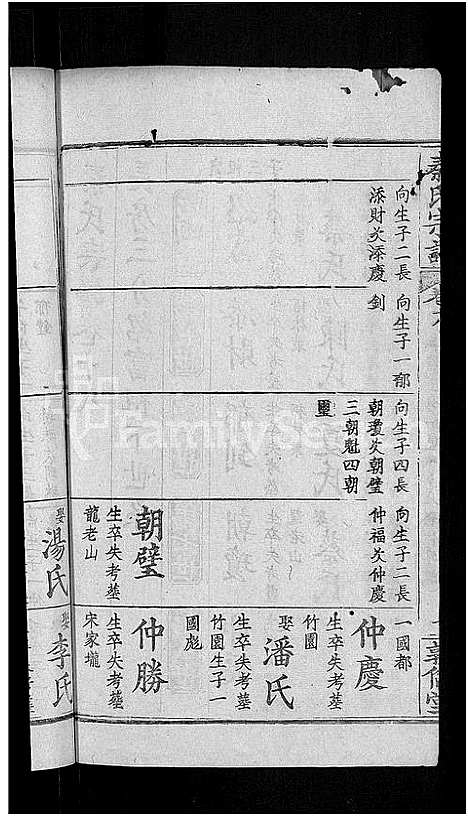 秦氏宗譜
敦倫堂
向生子二長
添財次添慶
向生子一郁
釗
向生子四長
朝瓊次朝璧
三朝魁四朝
璽
向生子二長
仲福次仲慶
一國都
仲慶
生卒失考塟
竹園
娶潘氏
生卒失考塟
竹園生子一
國彪
朝璧
生卒失考塟
龍老山
仲勝
生卒失考塟
宋家壠
娶湯氏
娶李氏
FamilySearch